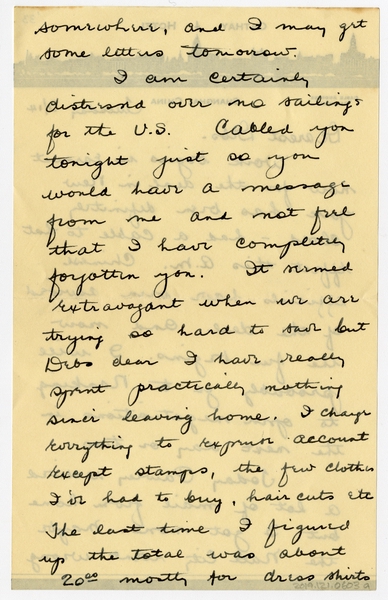 somewhere, and I may get
some letters tomorrow.
I am certainly
distressed over no sailings
for the U.S. Cabled you
tonight just so you
would have a message
from me and not feel
that I have completely
forgotten you. It seemed
extravagant when we are
trying so hard to save but
Debs dear I have really
spent practically nothing
since leaving home. I charge
everything to expense account
except stamps, the few clothes
I've had to buy, hair cuts etc
The last time I figured
up the total was about
20.00 mostly for dress shirts
2019.121.0603 a